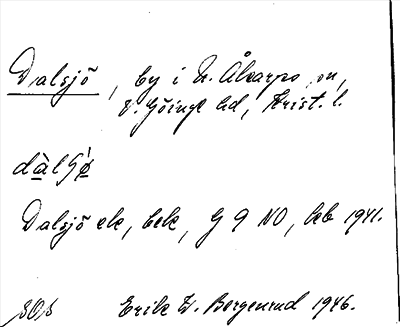 Dalsjö, by i N. Åkarps sn,
V. Göinge hd, Krist. l.
Dalsjö ek, bebl, G 9 NO, kb 1941.
Erik W. Bergenrud 1946.